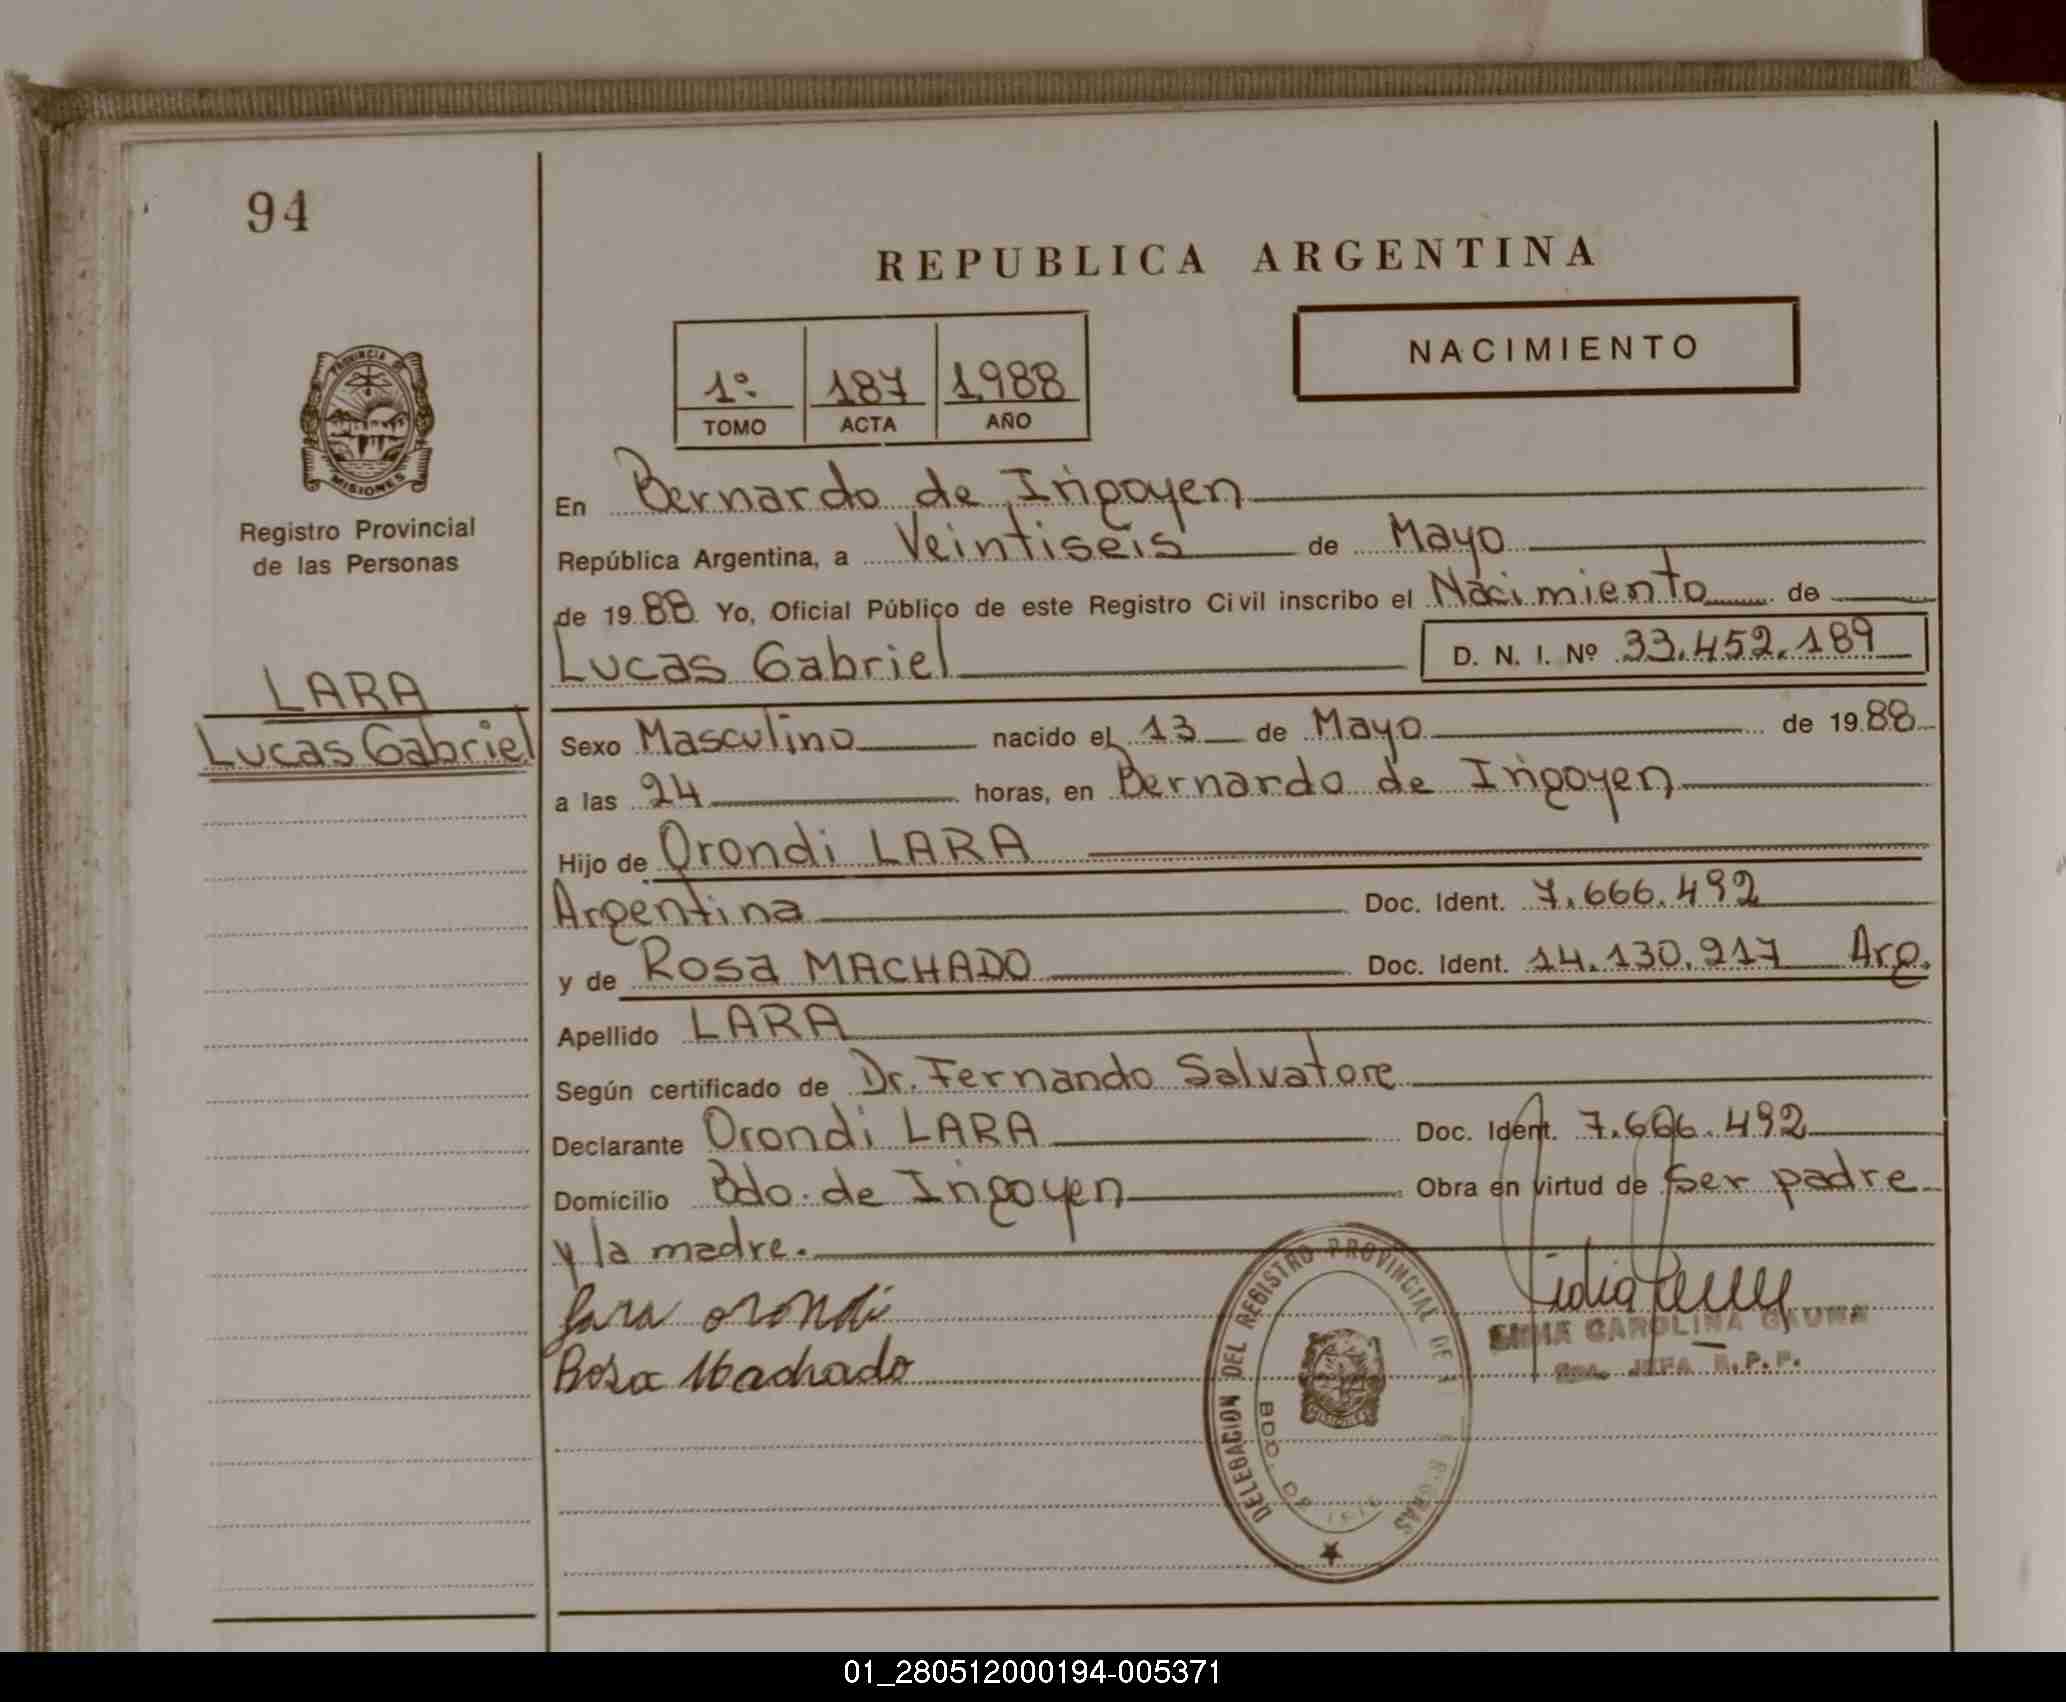 94
REPUBLICA ARGENTINA
NACIMIENTO
1º 187 1988
TOMO ACTA AÑO
PROVINCIA DE
MISIONES
Registro Provincial
de las Personas
LARA
Lucas Gabriel
En Bernardo de Irigoyen
República Argentina, a Veintiseis de Mayo
de 1988 Yo, Oficial Público de este Registro Civil inscribo el Nacimiento de
Lucas Gabriel D. N. I. Nº 33.452.189
Sexo Masculino nacido el 13 de Mayo de 1988
a las 24 horas, en Bernardo de Irigoyen
Hijo de Orondi LARA
Argentina Doc. Ident. 7.666.492
y de Rosa MACHADO Doc. Ident. 14.130.917 Arg.
Apellido LARA
Según certificado de Dr. Fernando Salvatore
Declarante Orondi LARA Doc. Ident. 7.666.492
Domicilio Bdo. de Irigoyen Obra en virtud de ser padre
y la madre.
Lara orondi
Rosa Machado
CAROLINA GAUNA
JEFA R.P.P.
DELEGACION DEL REGISTRO PROVINCIAL DE
BDO. DE
MISIONES
01_280512000194-005371